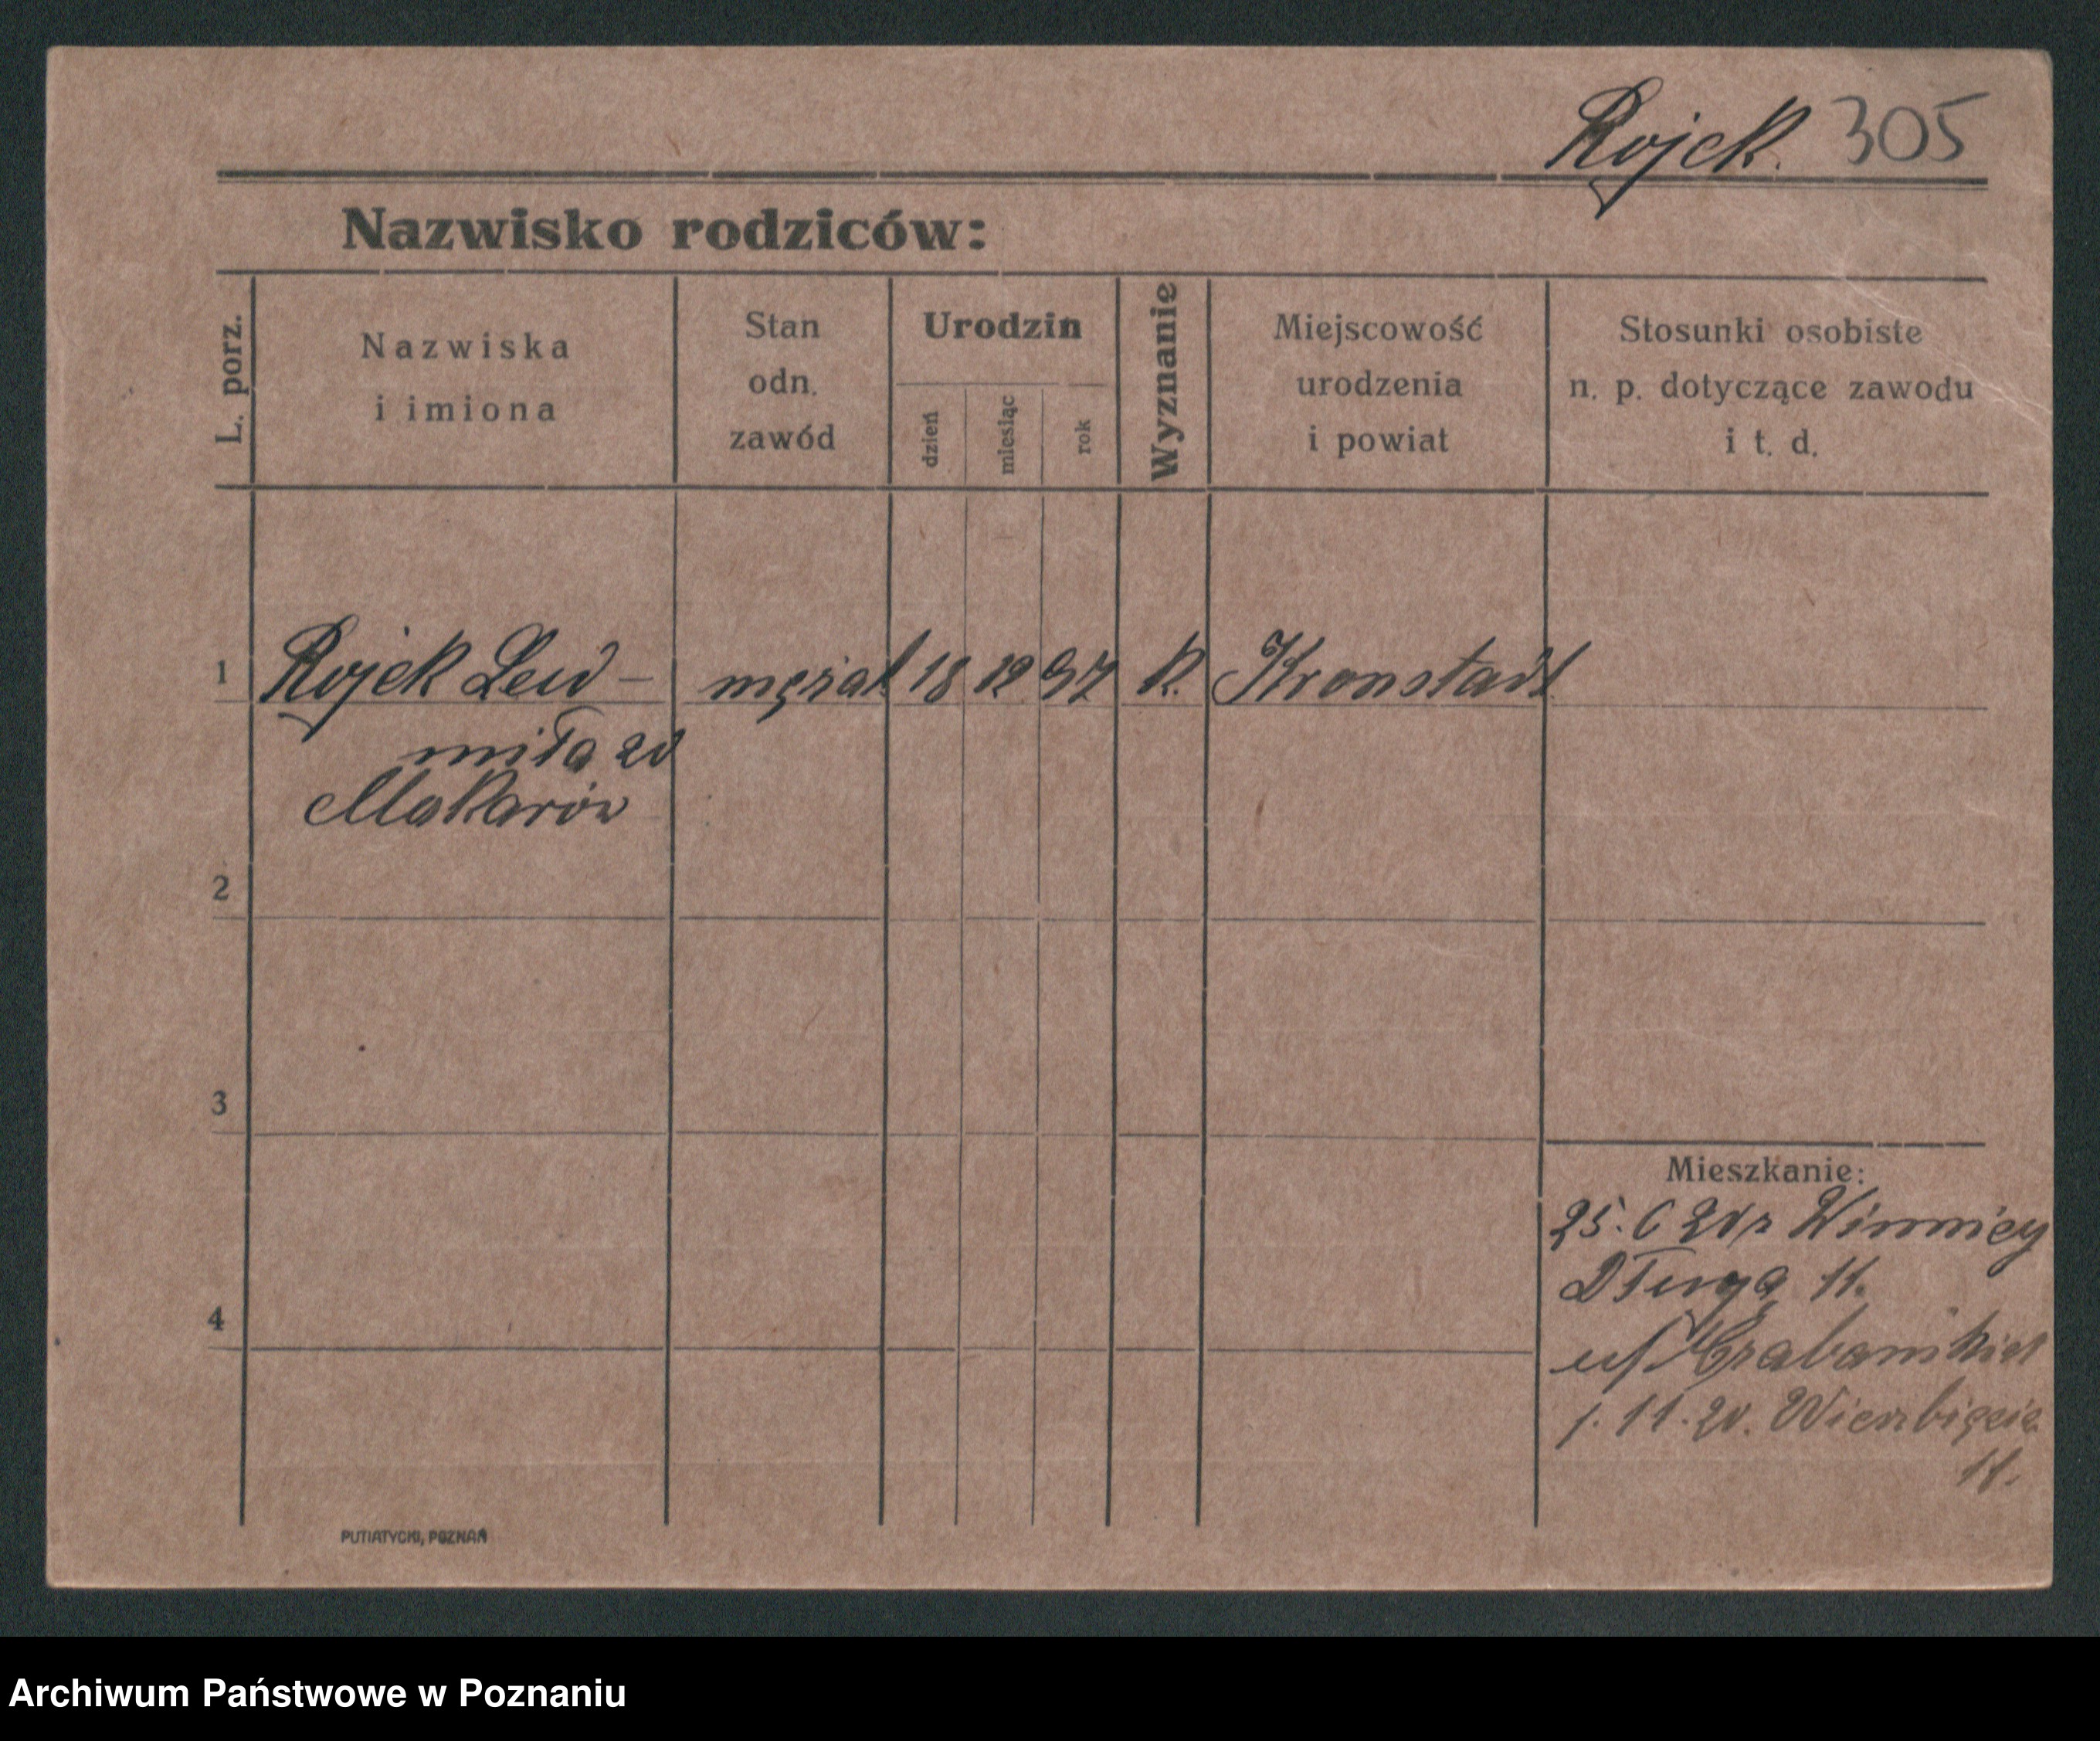 Rojek. 305
Nazwisko rodziców:
L. porz.
Nazwiska
i imiona
Stan
odn.
zawód
Urodzin
dzień
miesiąc
rok
Wyznanie
Miejscowość
urodzenia
i powiat
Stosunki osobiste
n. p. dotyczące zawodu
i t. d.
1 Rojek Leud- mężat 18 12 97 K. Kronstadt
miła zd
Makarów
2
3
4
Mieszkanie:
25. 6 20 z Winnicy
Długa 11.
1. 11. 20. Wierzbięcie
11.
PUTIATYCKI, POZNAŃ
Archiwum Państwowe w Poznaniu